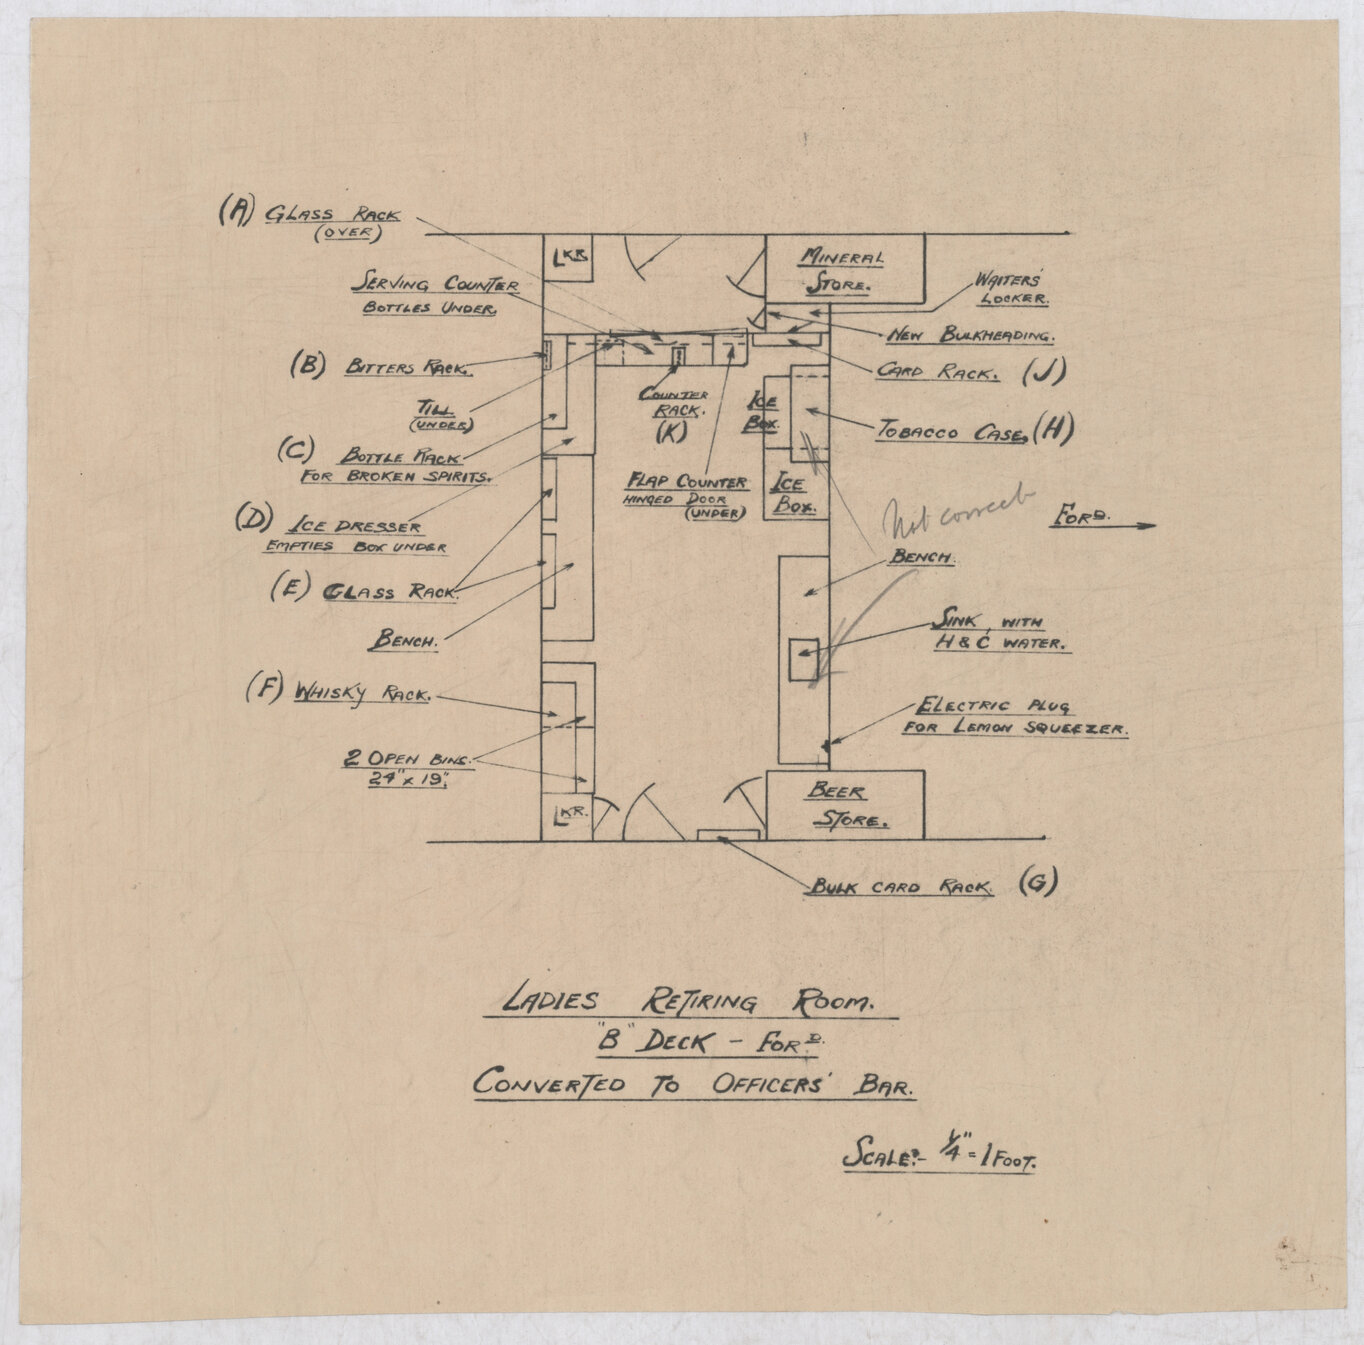 (A) GLASS RACK
(OVER)
SERVING COUNTER
BOTTLES UNDER.
(B) BITTERS RACK.
TILL
(UNDER)
(C) BOTTLE RACK
FOR BROKEN SPIRITS.
(D) ICE DRESSER
EMPTIES BOX UNDER
(E) GLASS RACK.
BENCH.
(F) WHISKY RACK.
2 OPEN BINS.
24" x 19".
LKR.
COUNTER
RACK.
(K)
FLAP COUNTER
HINGED DOOR
(UNDER)
LKR.
MINERAL
STORE.
WAITERS'
LOCKER.
NEW BULKHEADING.
CARD RACK. (J)
ICE
BOX.
TOBACCO CASE, (H)
ICE
BOX.
Not correct
FORD.
BENCH.
SINK, WITH
H & C WATER.
ELECTRIC PLUG
FOR LEMON SQUEEZER.
BEER
STORE.
BULK CARD RACK. (G)
LADIES RETIRING ROOM.
"B" DECK - FORD.
CONVERTED TO OFFICERS' BAR.
SCALE:- 1/4" = 1 FOOT.